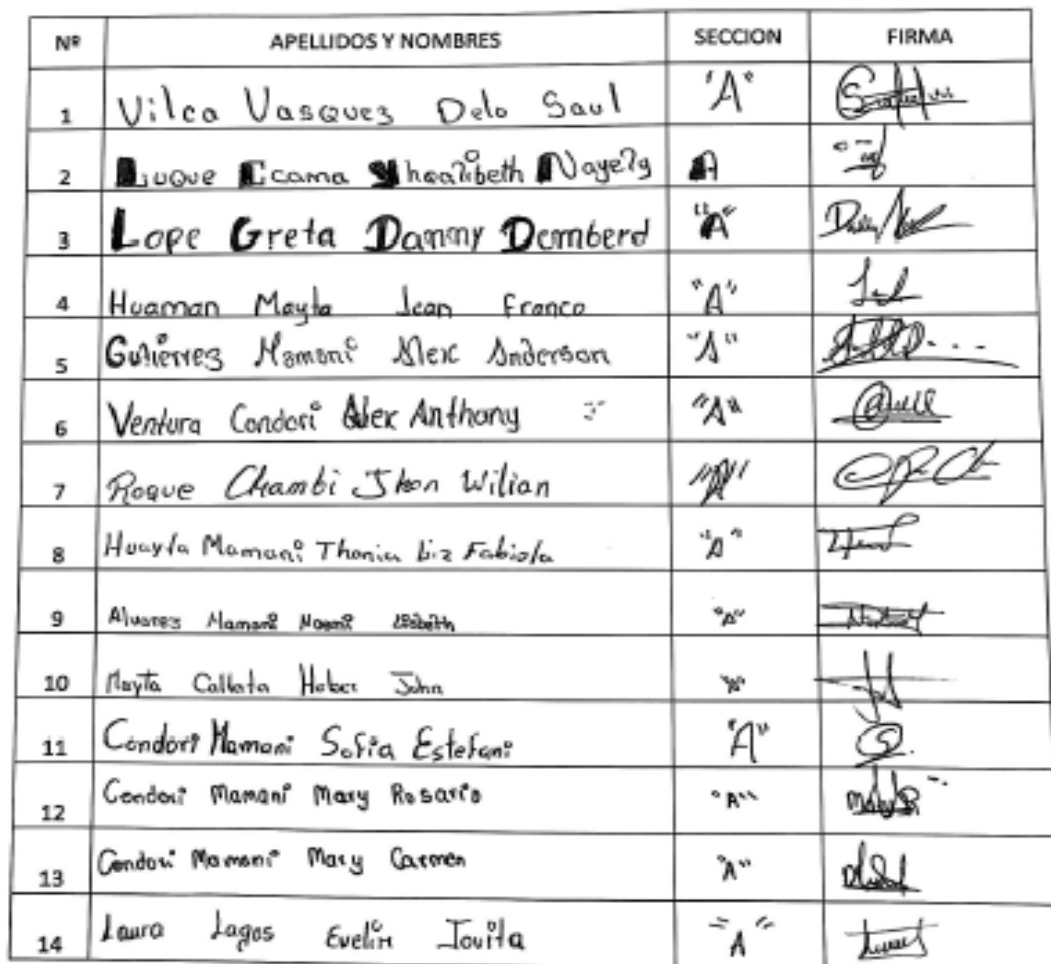 Nº APELLIDOS Y NOMBRES SECCION FIRMA
1 Vilca Vasquez Delo Saul "A"
2 Luque Ccama Yhealibeth Nayely A
3 Lope Greta Danny Demberd "A"
4 Huaman Mayta Jean Franco "A"
5 Gutiérrez Mamani Alex Anderson "A"
6 Ventura Condori Alex Anthony "A"
7 Roque Chambi Jhon Wilian "A"
8 Huayta Mamani Thania Liz Fabiola "A"
9 Alvarez Mamani Noemi "A"
10 Mayta Callata Heber John "A"
11 Condori Mamani Sofia Estefani "A"
12 Condori Mamani Mary Rosario "A"
13 Condori Mamani Mary Carmen "A"
14 Laura Lagos Evelin Jovita "A"